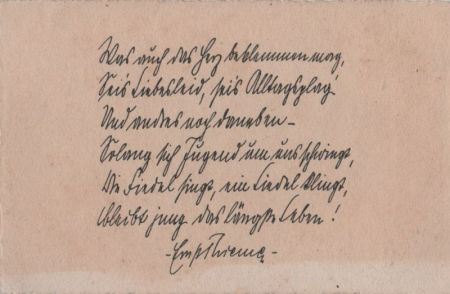 Was auch das Herz beklemmen mag,
Sei's Liebesleid, sei's Alltagsplag'
Und andres noch daneben –
Solang sich Jugend um uns schwingt,
Die Fiedel singt, ein Liedel klingt,
Bleibt jung das längste Leben!